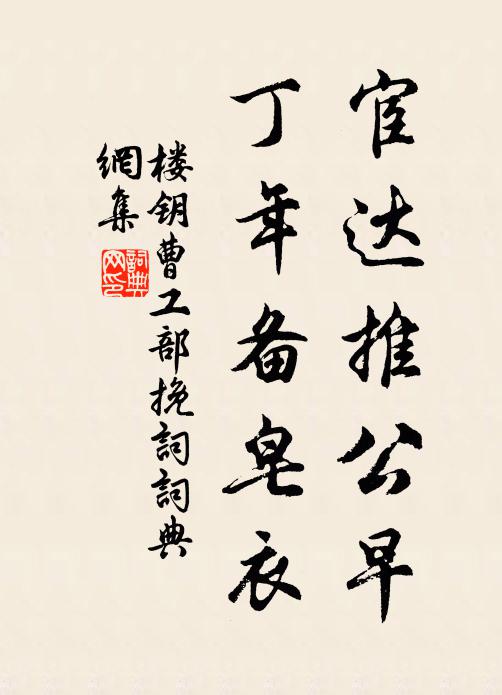 宦达推公早
丁年备皂衣
楼钥曹工部挽詞詞典
網集
詞典
网印